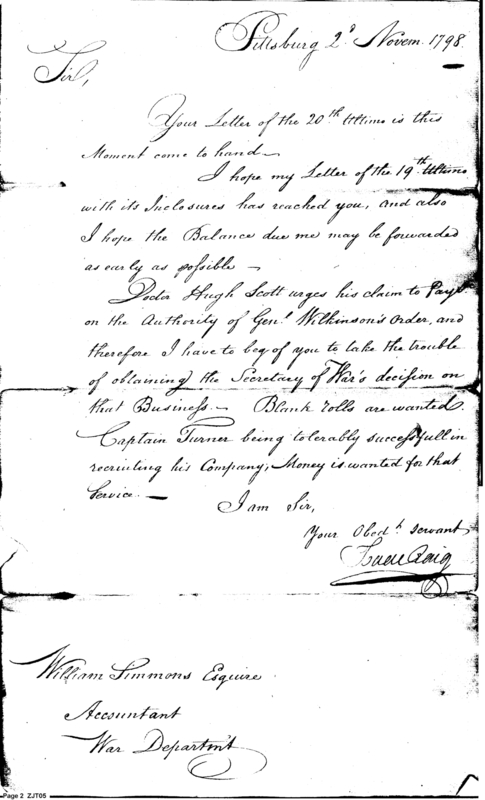 Pittsburg 2d Novem. 1798
Sir,
Your Letter of the 20th Ultimo is this
Moment come to hand —
I hope my Letter of the 19th Ultimo
with its Inclosures has reached you, and also
I hope the Balance due me may be forwarded
as early as possible —
Doctor Hugh Scott urges his claim to Payt
on the Authority of Genl Wilkinson's Order, and
therefore I have to beg of you to take the trouble
of obtaining the Secretary of War's decision on
that Business — Blank rolls are wanted.
Captain Turner being tolerably successfull in
recruiting his Company, Money is wanted for that
Service. —
I am Sir,
Your Obedt servant
Isaac Craig
William Simmons Esquire
Accountant
War Departmt
Page 2 ZJT05